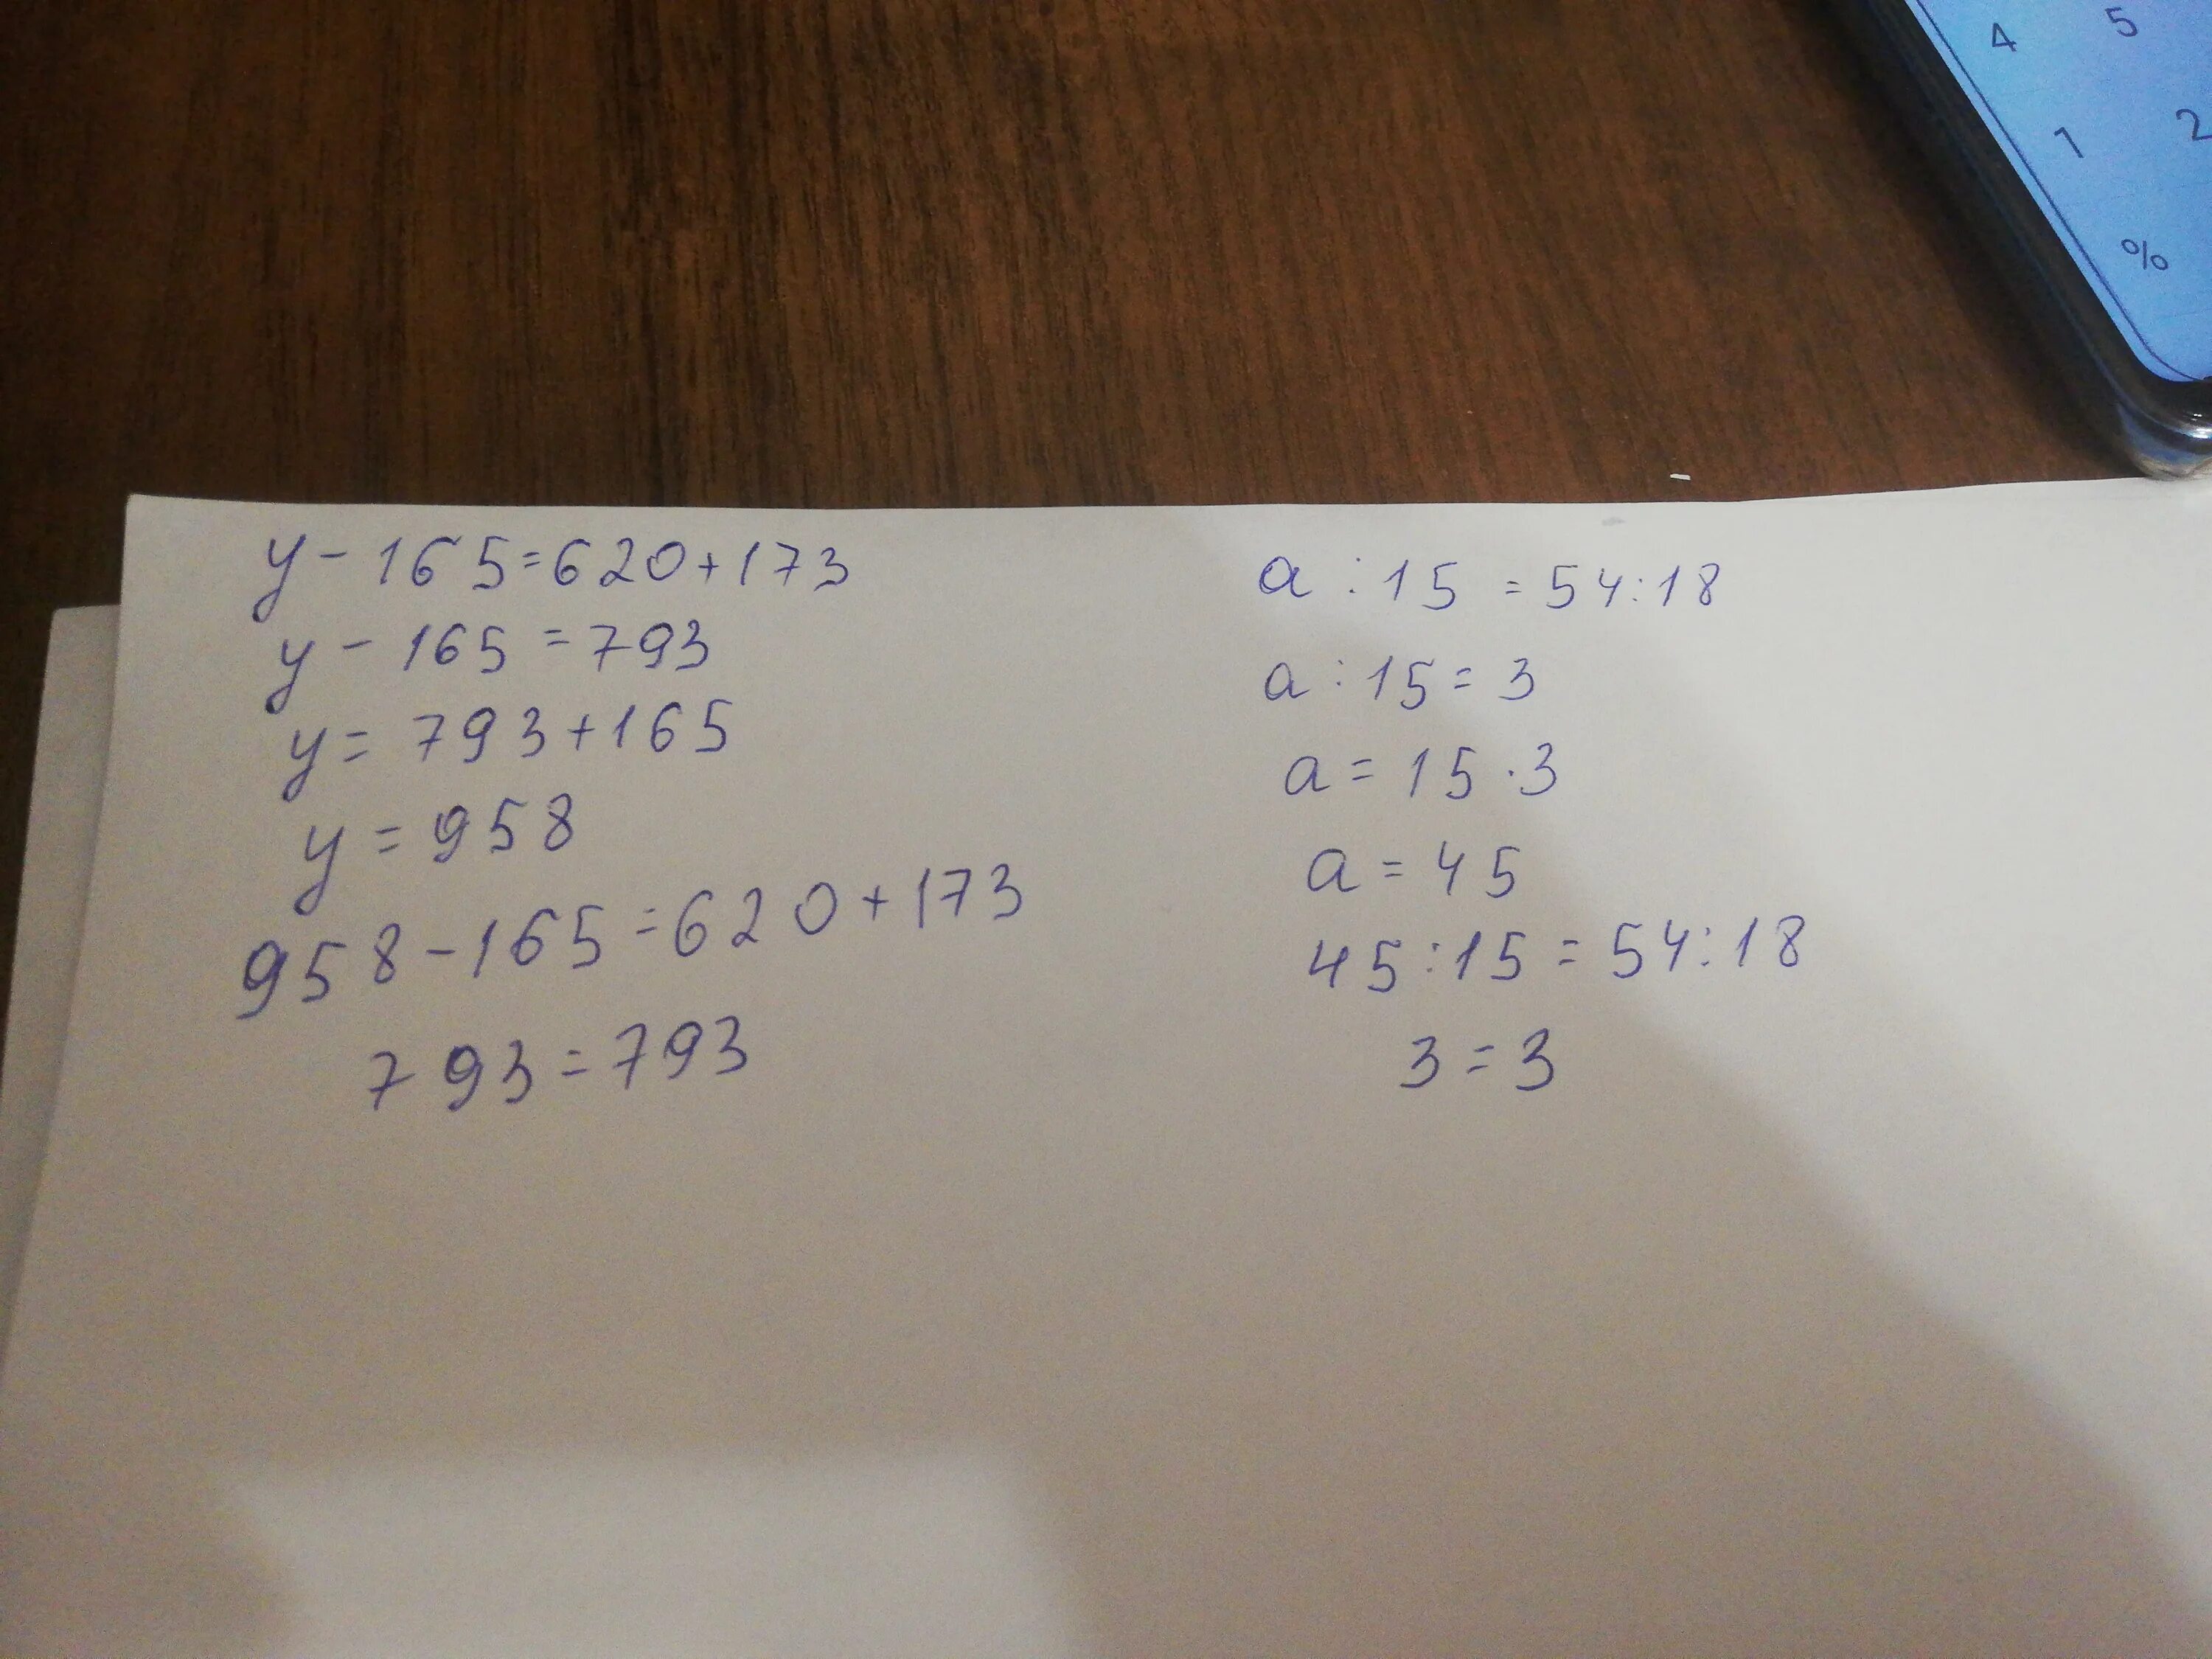 4 5
1 2
%
y - 165 = 620 + 173
y - 165 = 793
y = 793 + 165
y = 958
958 - 165 = 620 + 173
793 = 793
a : 15 = 54 : 18
a : 15 = 3
a = 15 · 3
a = 45
45 : 15 = 54 : 18
3 = 3